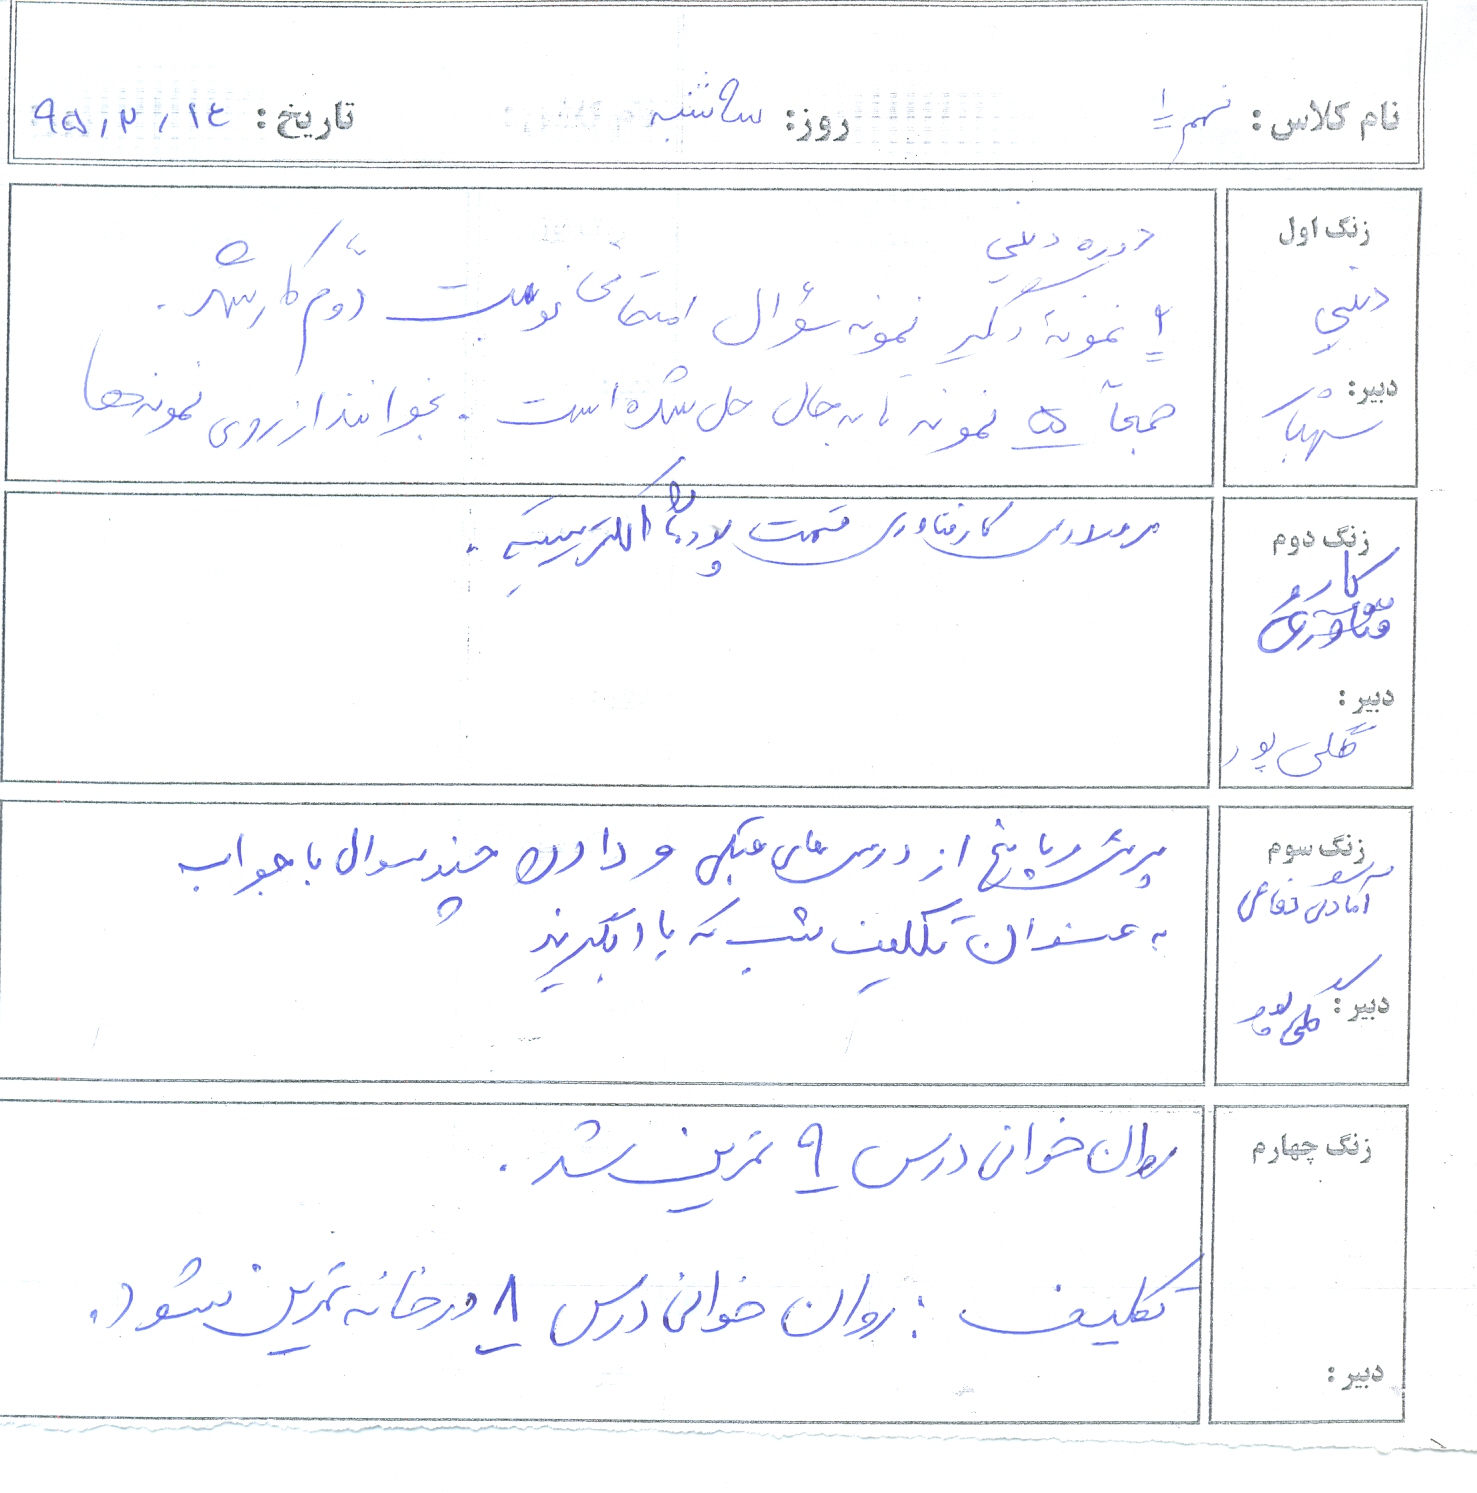 نام کلاس : نهم ۱ روز: سه شنبه تاریخ: ۹۵٫۲٫۱٤
زنگ اول
دینی
دبیر:
دوره دینی
۲ نمونهٔ دیگر نمونه سؤال امتحانی نوبت دوّم کار شد.
جمعاً ۵ نمونه تا به حال حل شده است. بخوانند از روی نمونه‌ها
زنگ دوم
کار و
فناوری
دبیر :
گلی پور
کار فناوری قسمت پودمان الکتریسیته.
زنگ سوم
آمادگی دفاعی
دبیر :
گلی پور
پرسش و پاسخ از درس های قبلی و دادن چند سوال با جواب
به عنوان تکلیف شب که یاد بگیرند
زنگ چهارم
دبیر :
روان خوانی درس ۹ تمرین شد.
تکلیف : روان خوانی درس ۸ در خانه تمرین شود.